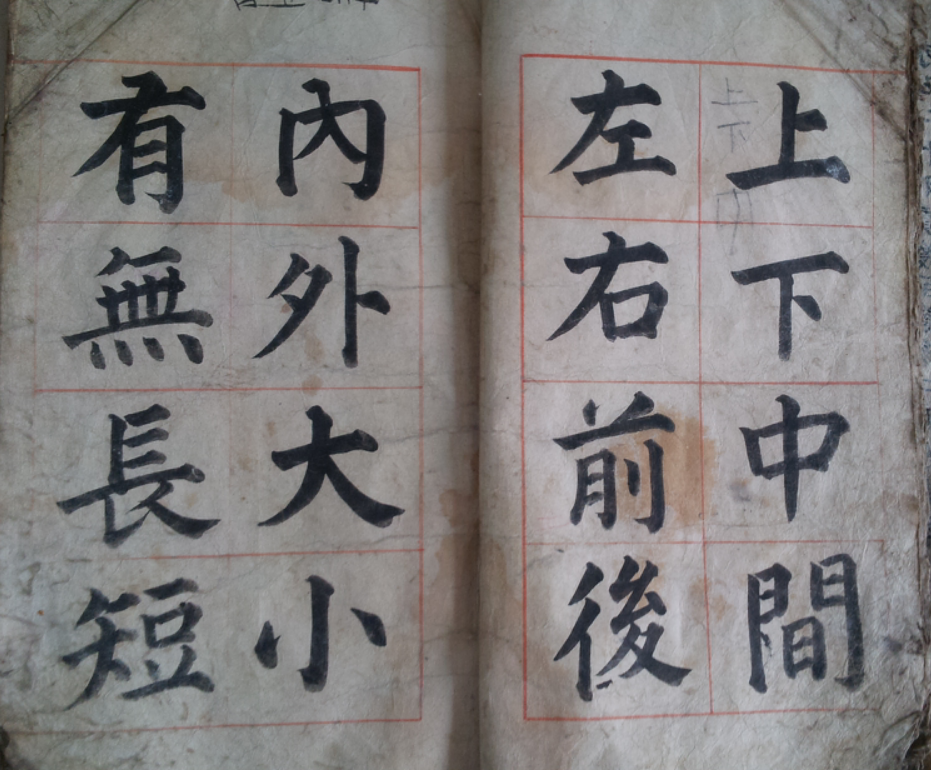 上下中間
左右前後
內外大小
有無長短
上下